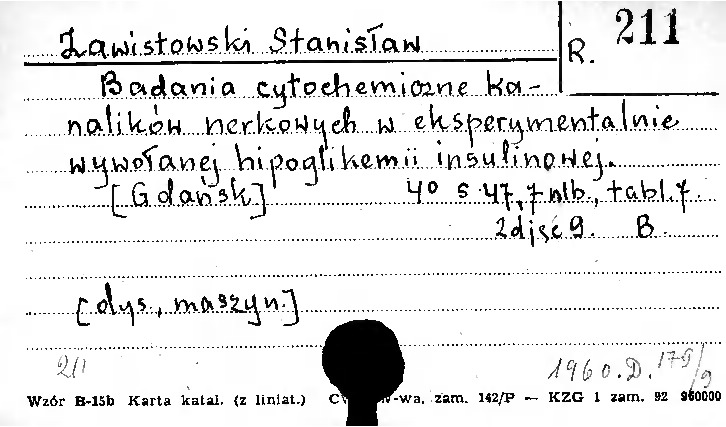 Zawistowski Stanisław
R. 211
Badania cytochemiczne ka-
nalików nerkowych w eksperymentalnie
wywołanej hipoglikemii insulinowej.
[Gdańsk] 4° s 47, 7 nlb., tabl. 7.
zdjęć 9. B.
[dys., maszyn.]
211 1960.D.179/9
Wzór B-15b Karta katal. (z liniat.) -wa, zam. 142/P — KZG 1 zam. 92 960000